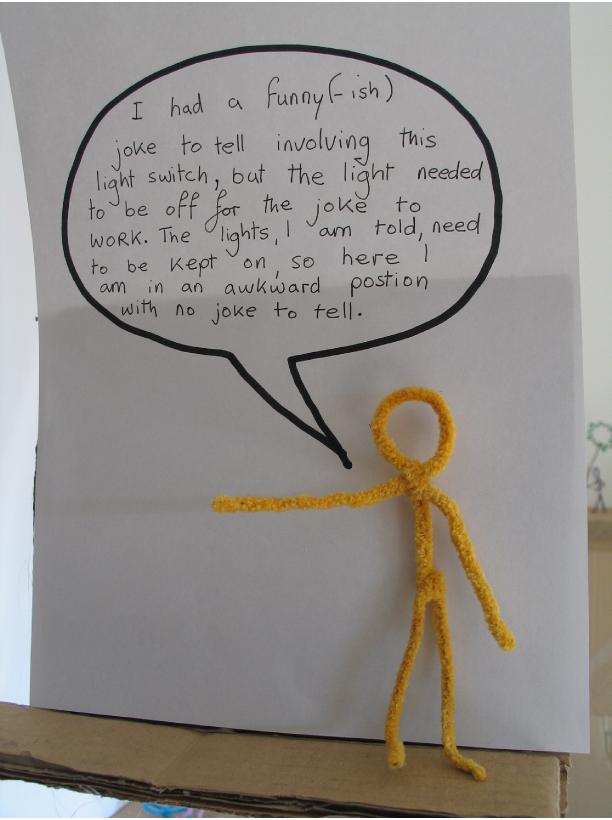 I had a funny(-ish)
joke to tell involving this
light switch, but the light needed
to be off for the joke to
work. The lights, I am told, need
to be kept on, so here I
am in an awkward postion
with no joke to tell.